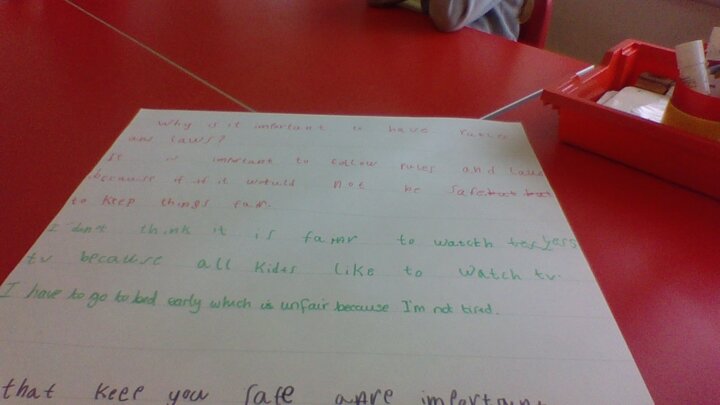 Why is it important to have rules
and laws?
It is important to follow rules and laws
because if it would not be safe
to keep things fair.
I don't think it is fair to watch less
tv because all kids like to watch tv.
I have to go to bed early which is unfair because I'm not tired.
that keep you safe are important